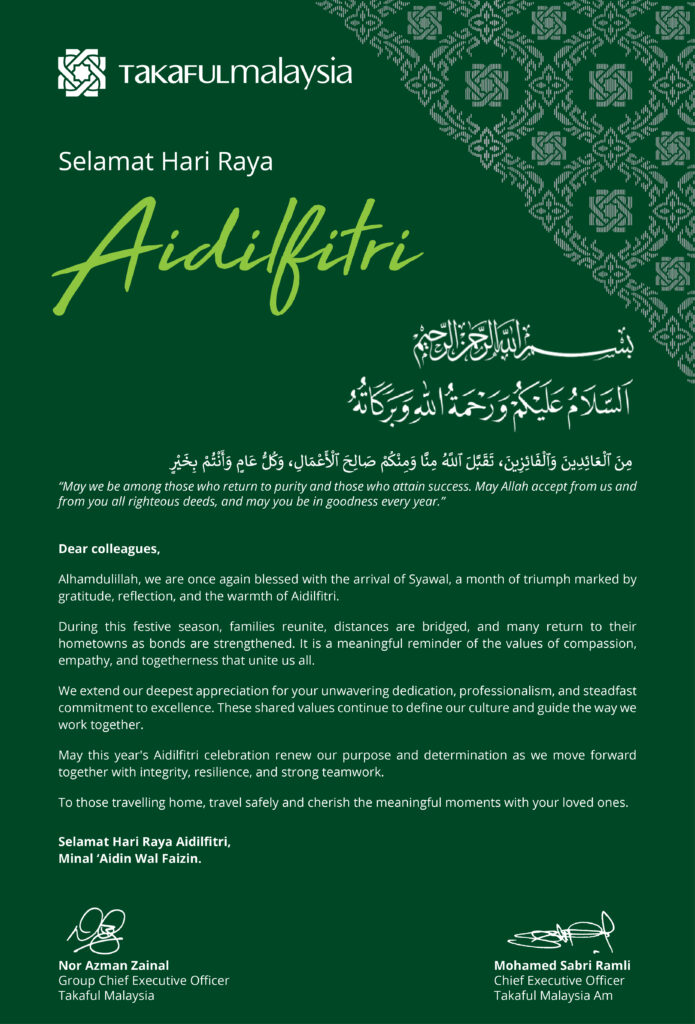 TAKAFULmalaysia
Selamat Hari Raya
Aidilfitri
بِسْمِ اللهِ الرَّحْمٰنِ الرَّحِيْمِ
اَلسَّلَامُ عَلَيْكُمْ وَرَحْمَةُ اللهِ وَبَرَكَاتُهُ
مِنَ ٱلْعَائِدِينَ وَٱلْفَائِزِينَ، تَقَبَّلَ ٱللَّهُ مِنَّا وَمِنْكُمْ صَالِحَ ٱلْأَعْمَالِ، وَكُلُّ عَامٍ وَأَنْتُمْ بِخَيْرٍ
“May we be among those who return to purity and those who attain success. May Allah accept from us and
from you all righteous deeds, and may you be in goodness every year.”
Dear colleagues,
Alhamdulillah, we are once again blessed with the arrival of Syawal, a month of triumph marked by
gratitude, reflection, and the warmth of Aidilfitri.
During this festive season, families reunite, distances are bridged, and many return to their
hometowns as bonds are strengthened. It is a meaningful reminder of the values of compassion,
empathy, and togetherness that unite us all.
We extend our deepest appreciation for your unwavering dedication, professionalism, and steadfast
commitment to excellence. These shared values continue to define our culture and guide the way we
work together.
May this year's Aidilfitri celebration renew our purpose and determination as we move forward
together with integrity, resilience, and strong teamwork.
To those travelling home, travel safely and cherish the meaningful moments with your loved ones.
Selamat Hari Raya Aidilfitri,
Minal ‘Aidin Wal Faizin.
Nor Azman Zainal
Group Chief Executive Officer
Takaful Malaysia
Mohamed Sabri Ramli
Chief Executive Officer
Takaful Malaysia Am